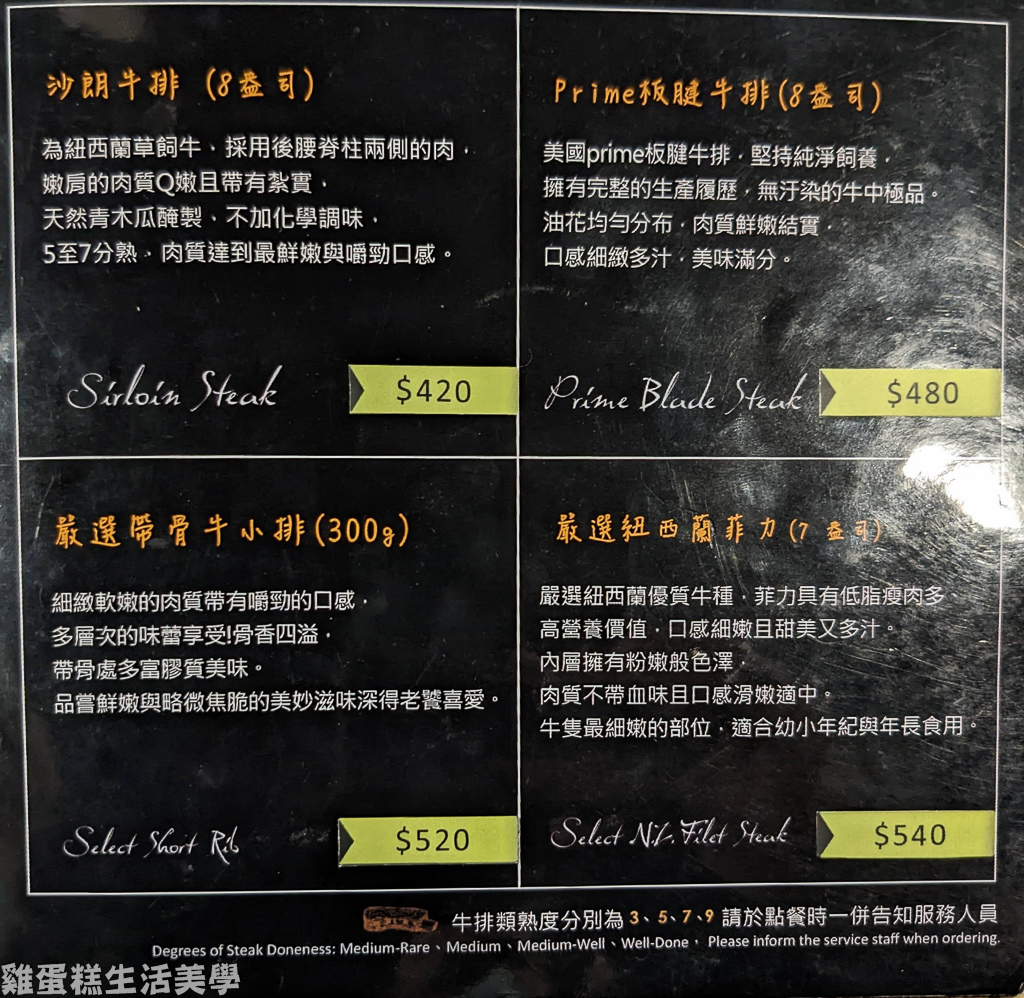 沙朗牛排 (8盎司)
為紐西蘭草飼牛、採用後腰脊柱兩側的肉，
嫩肩的肉質Q嫩且帶有紮實，
天然青木瓜醃製、不加化學調味，
5至7分熟，肉質達到最鮮嫩與嚼勁口感。
Sirloin Steak
$420
Prime板腱牛排(8盎司)
美國prime板腱牛排，堅持純淨飼養，
擁有完整的生產履歷，無汙染的牛中極品。
油花均勻分布，肉質鮮嫩結實，
口感細緻多汁，美味滿分。
Prime Blade Steak
$480
嚴選帶骨牛小排(300g)
細緻軟嫩的肉質帶有嚼勁的口感，
多層次的味蕾享受!骨香四溢，
帶骨處多富膠質美味。
品嘗鮮嫩與略微焦脆的美妙滋味深得老饕喜愛。
Select Short Rib
$520
嚴選紐西蘭菲力(7 盎司)
嚴選紐西蘭優質牛種，菲力具有低脂瘦肉多、
高營養價值，口感細嫩且甜美又多汁。
內層擁有粉嫩般色澤，
肉質不帶血味且口感滑嫩適中。
牛隻最細嫩的部位，適合幼小年紀與年長食用。
Select N.Z. Filet Steak
$540
牛排類熟度分別為 3、5、7、9 請於點餐時一併告知服務人員
Degrees of Steak Doneness: Medium-Rare、Medium、Medium-Well、Well-Done， Please inform the service staff when ordering.
雞蛋糕生活美學